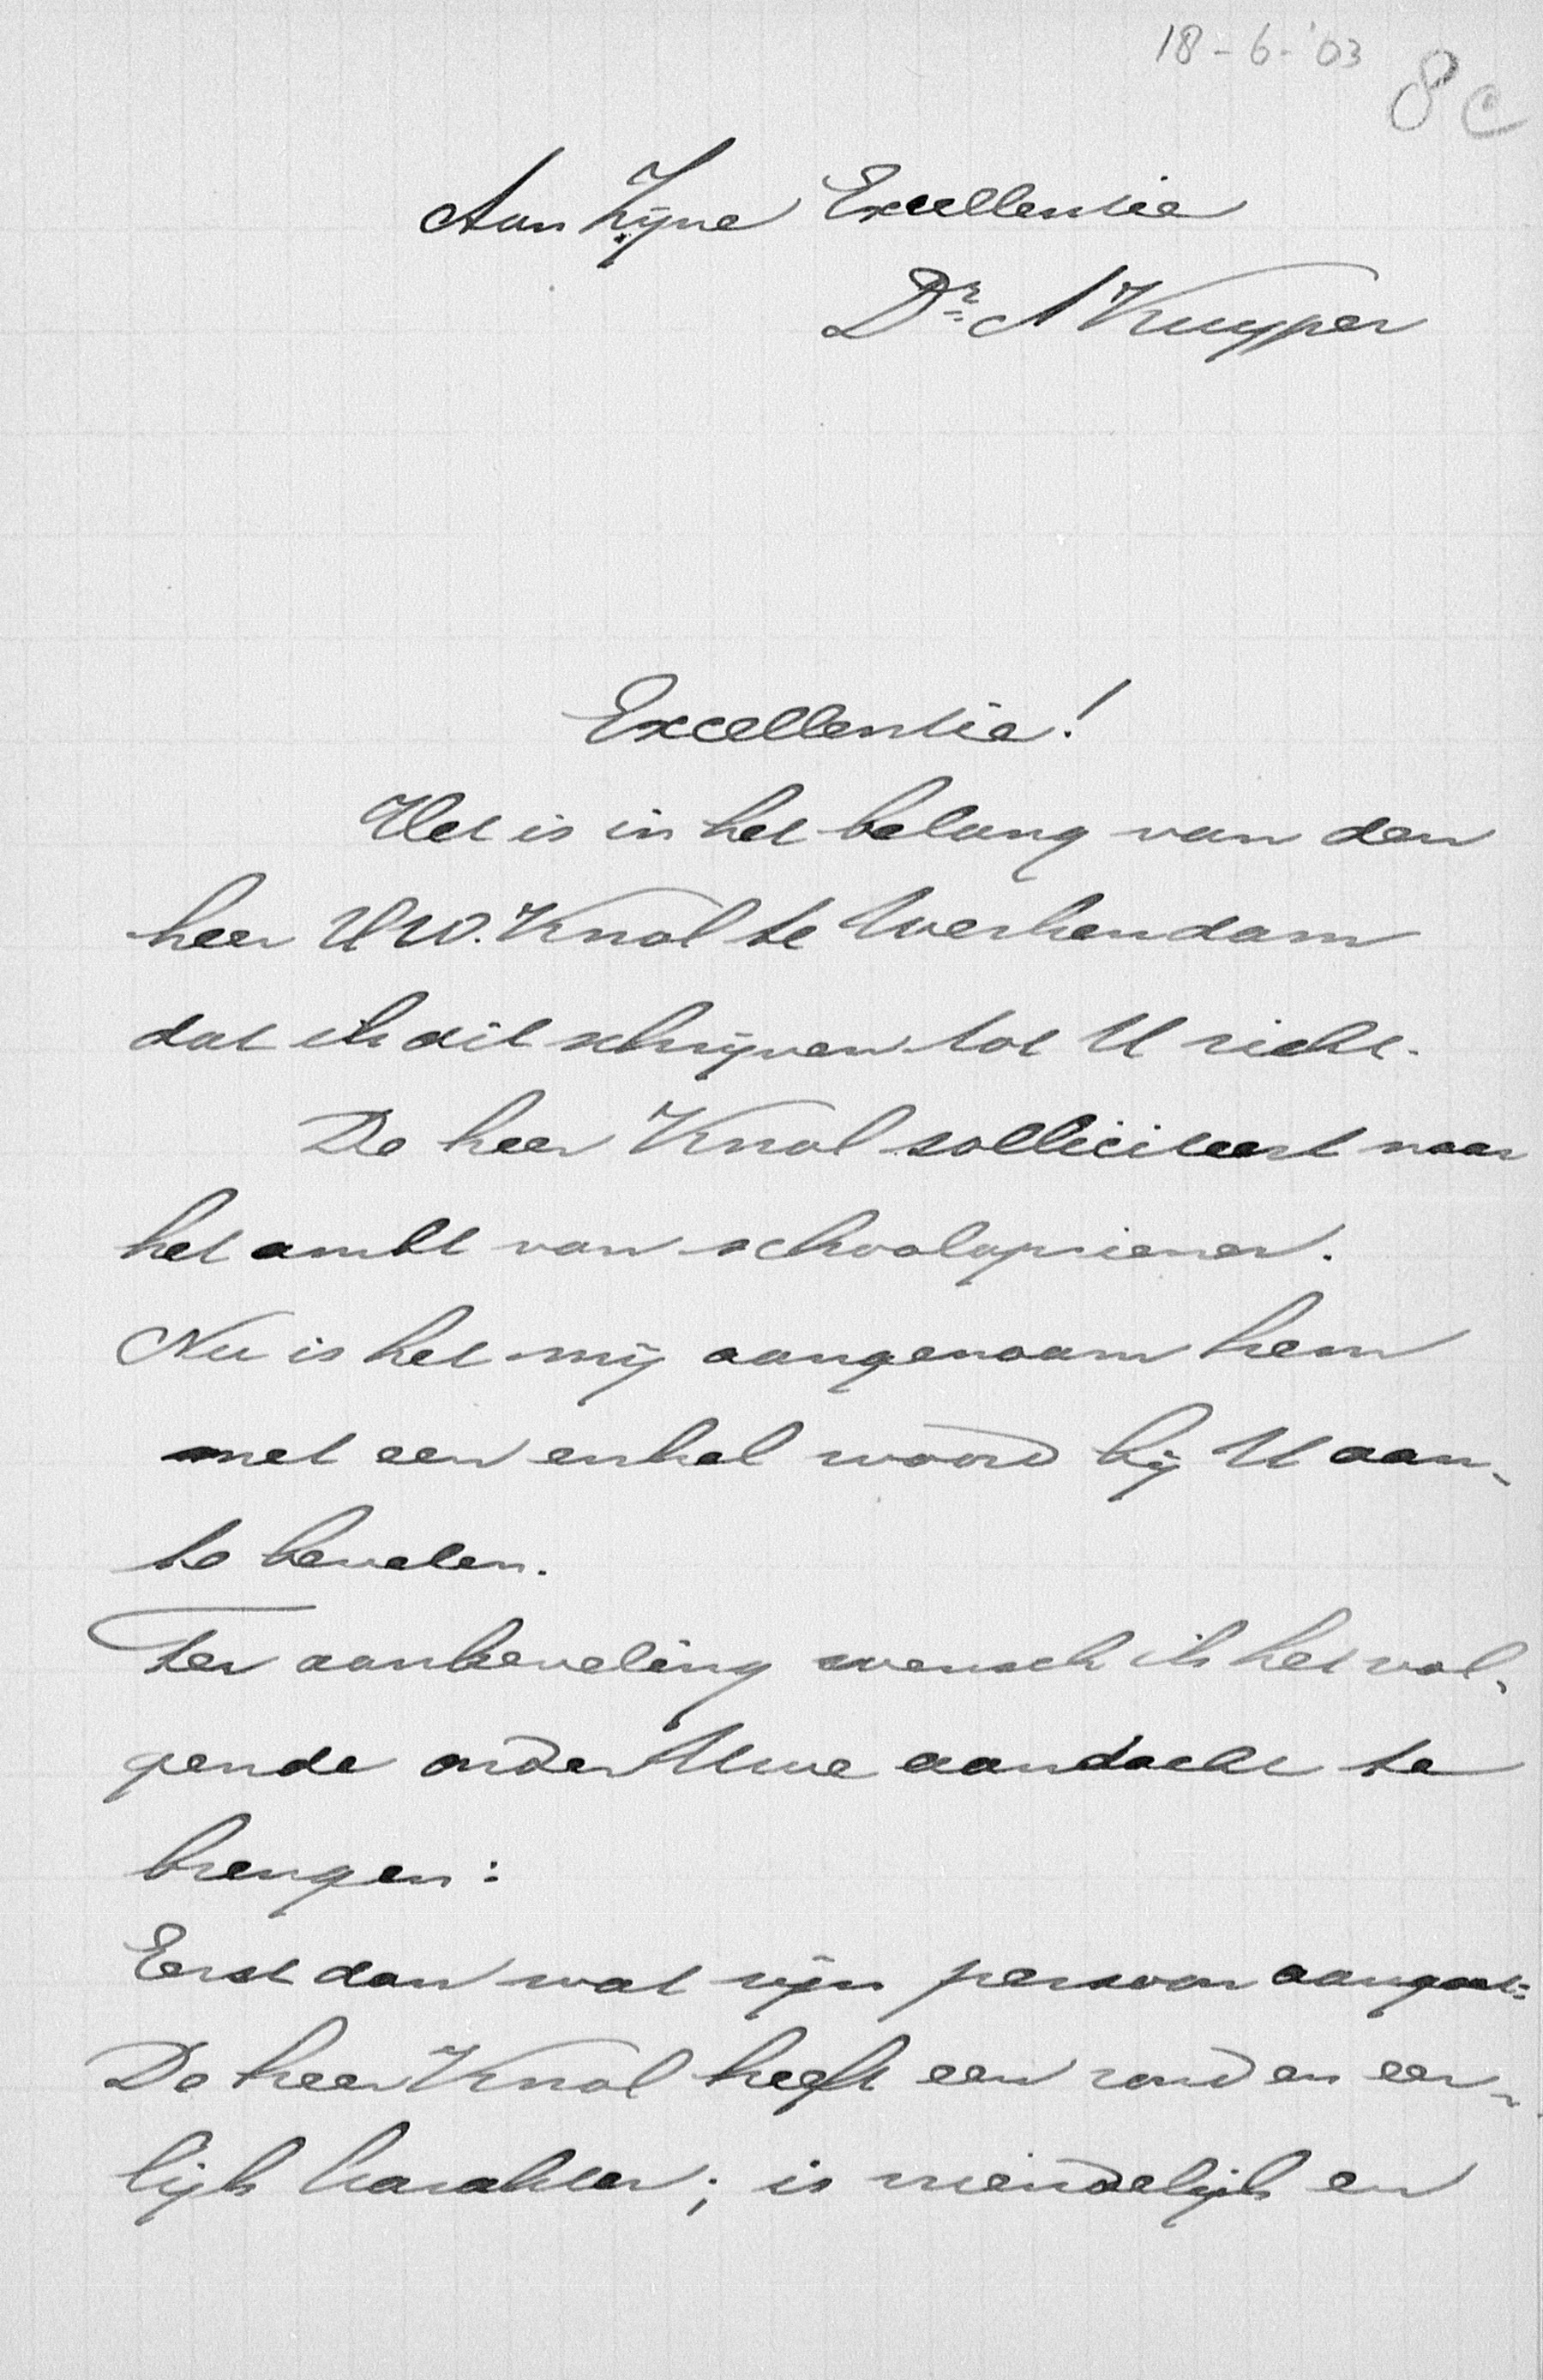 18-6-'03
8c
Aan Zijne Excellentie
Dr. A Kuyper
Excellentie!
Het is in het belang van den
heer H W. Knol te Werkendam
dat ik dit schrijven tot U richt.
De heer Knol solliciteert naar
het ambt van schoolopziener.
Nu is het mij aangenaam hem
met een enkel woord bij U aan-
te bevelen.
Ter aanbeveling wensch ik het vol-
gende onder Uwe aandacht te
brengen:
Eerst dan wat zijn persoon aangaat:
De heer Knol heeft een rond en eer-
lijk karakter; is vriendelijk en